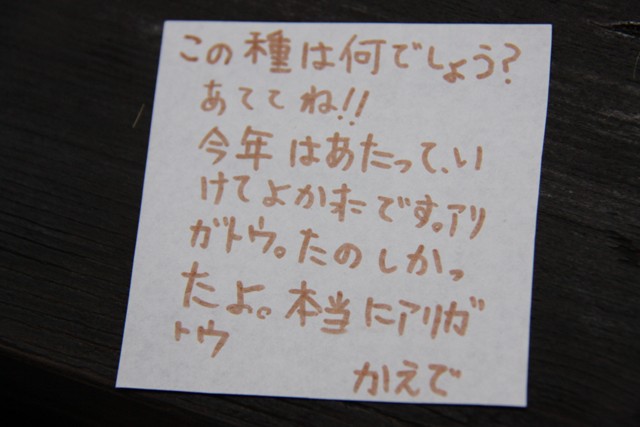 この種は何でしょう?
あててね!!
今年はあたって、い
けてよかたです。アリ
ガトウ。たのしかっ
たよ。本当にアリガ
トウ
かえで